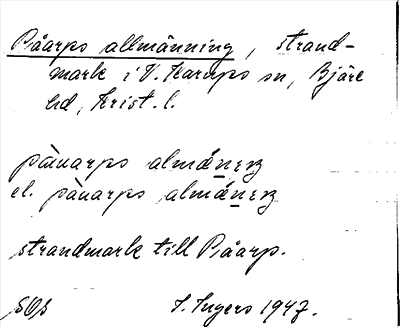 Påarps allmänning, strand-
mark i V. Karups sn, Bjäre
hd, Krist. l.
pàuarps almǽneŋ
el. pàuarps almǽneŋ
strandmark till Påarp.
I. Ingers 1947.